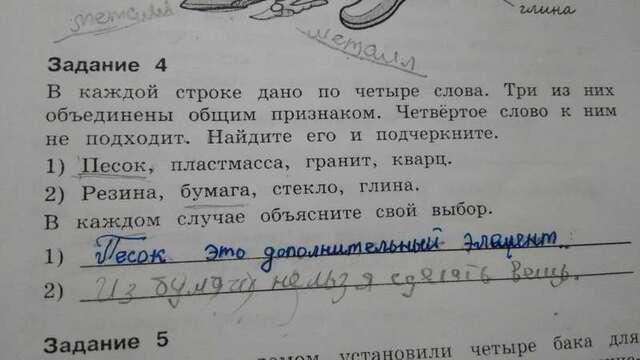 металл
глина
Задание 4
В каждой строке дано по четыре слова. Три из них
объединены общим признаком. Четвёртое слово к ним
не подходит. Найдите его и подчеркните.
1) Песок, пластмасса, гранит, кварц.
2) Резина, бумага, стекло, глина.
В каждом случае объясните свой выбор.
1) Песок это дополнительный элемент.
2) Из бумаги нельзя сделать вещь.
Задание 5
установили четыре бака для